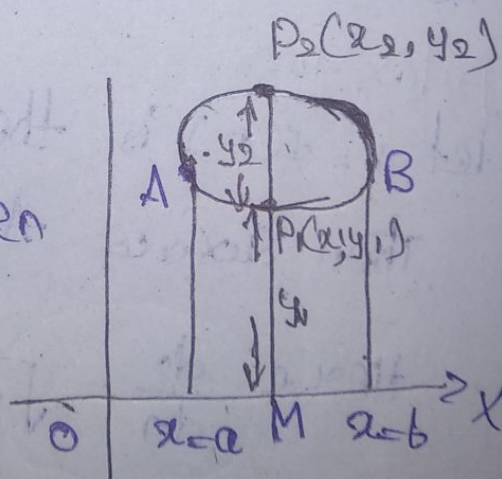 P₂(x₂, y₂)
y₂
A
B
P₁(x, y₁)
y₁
O
x=a
M
x=b
X